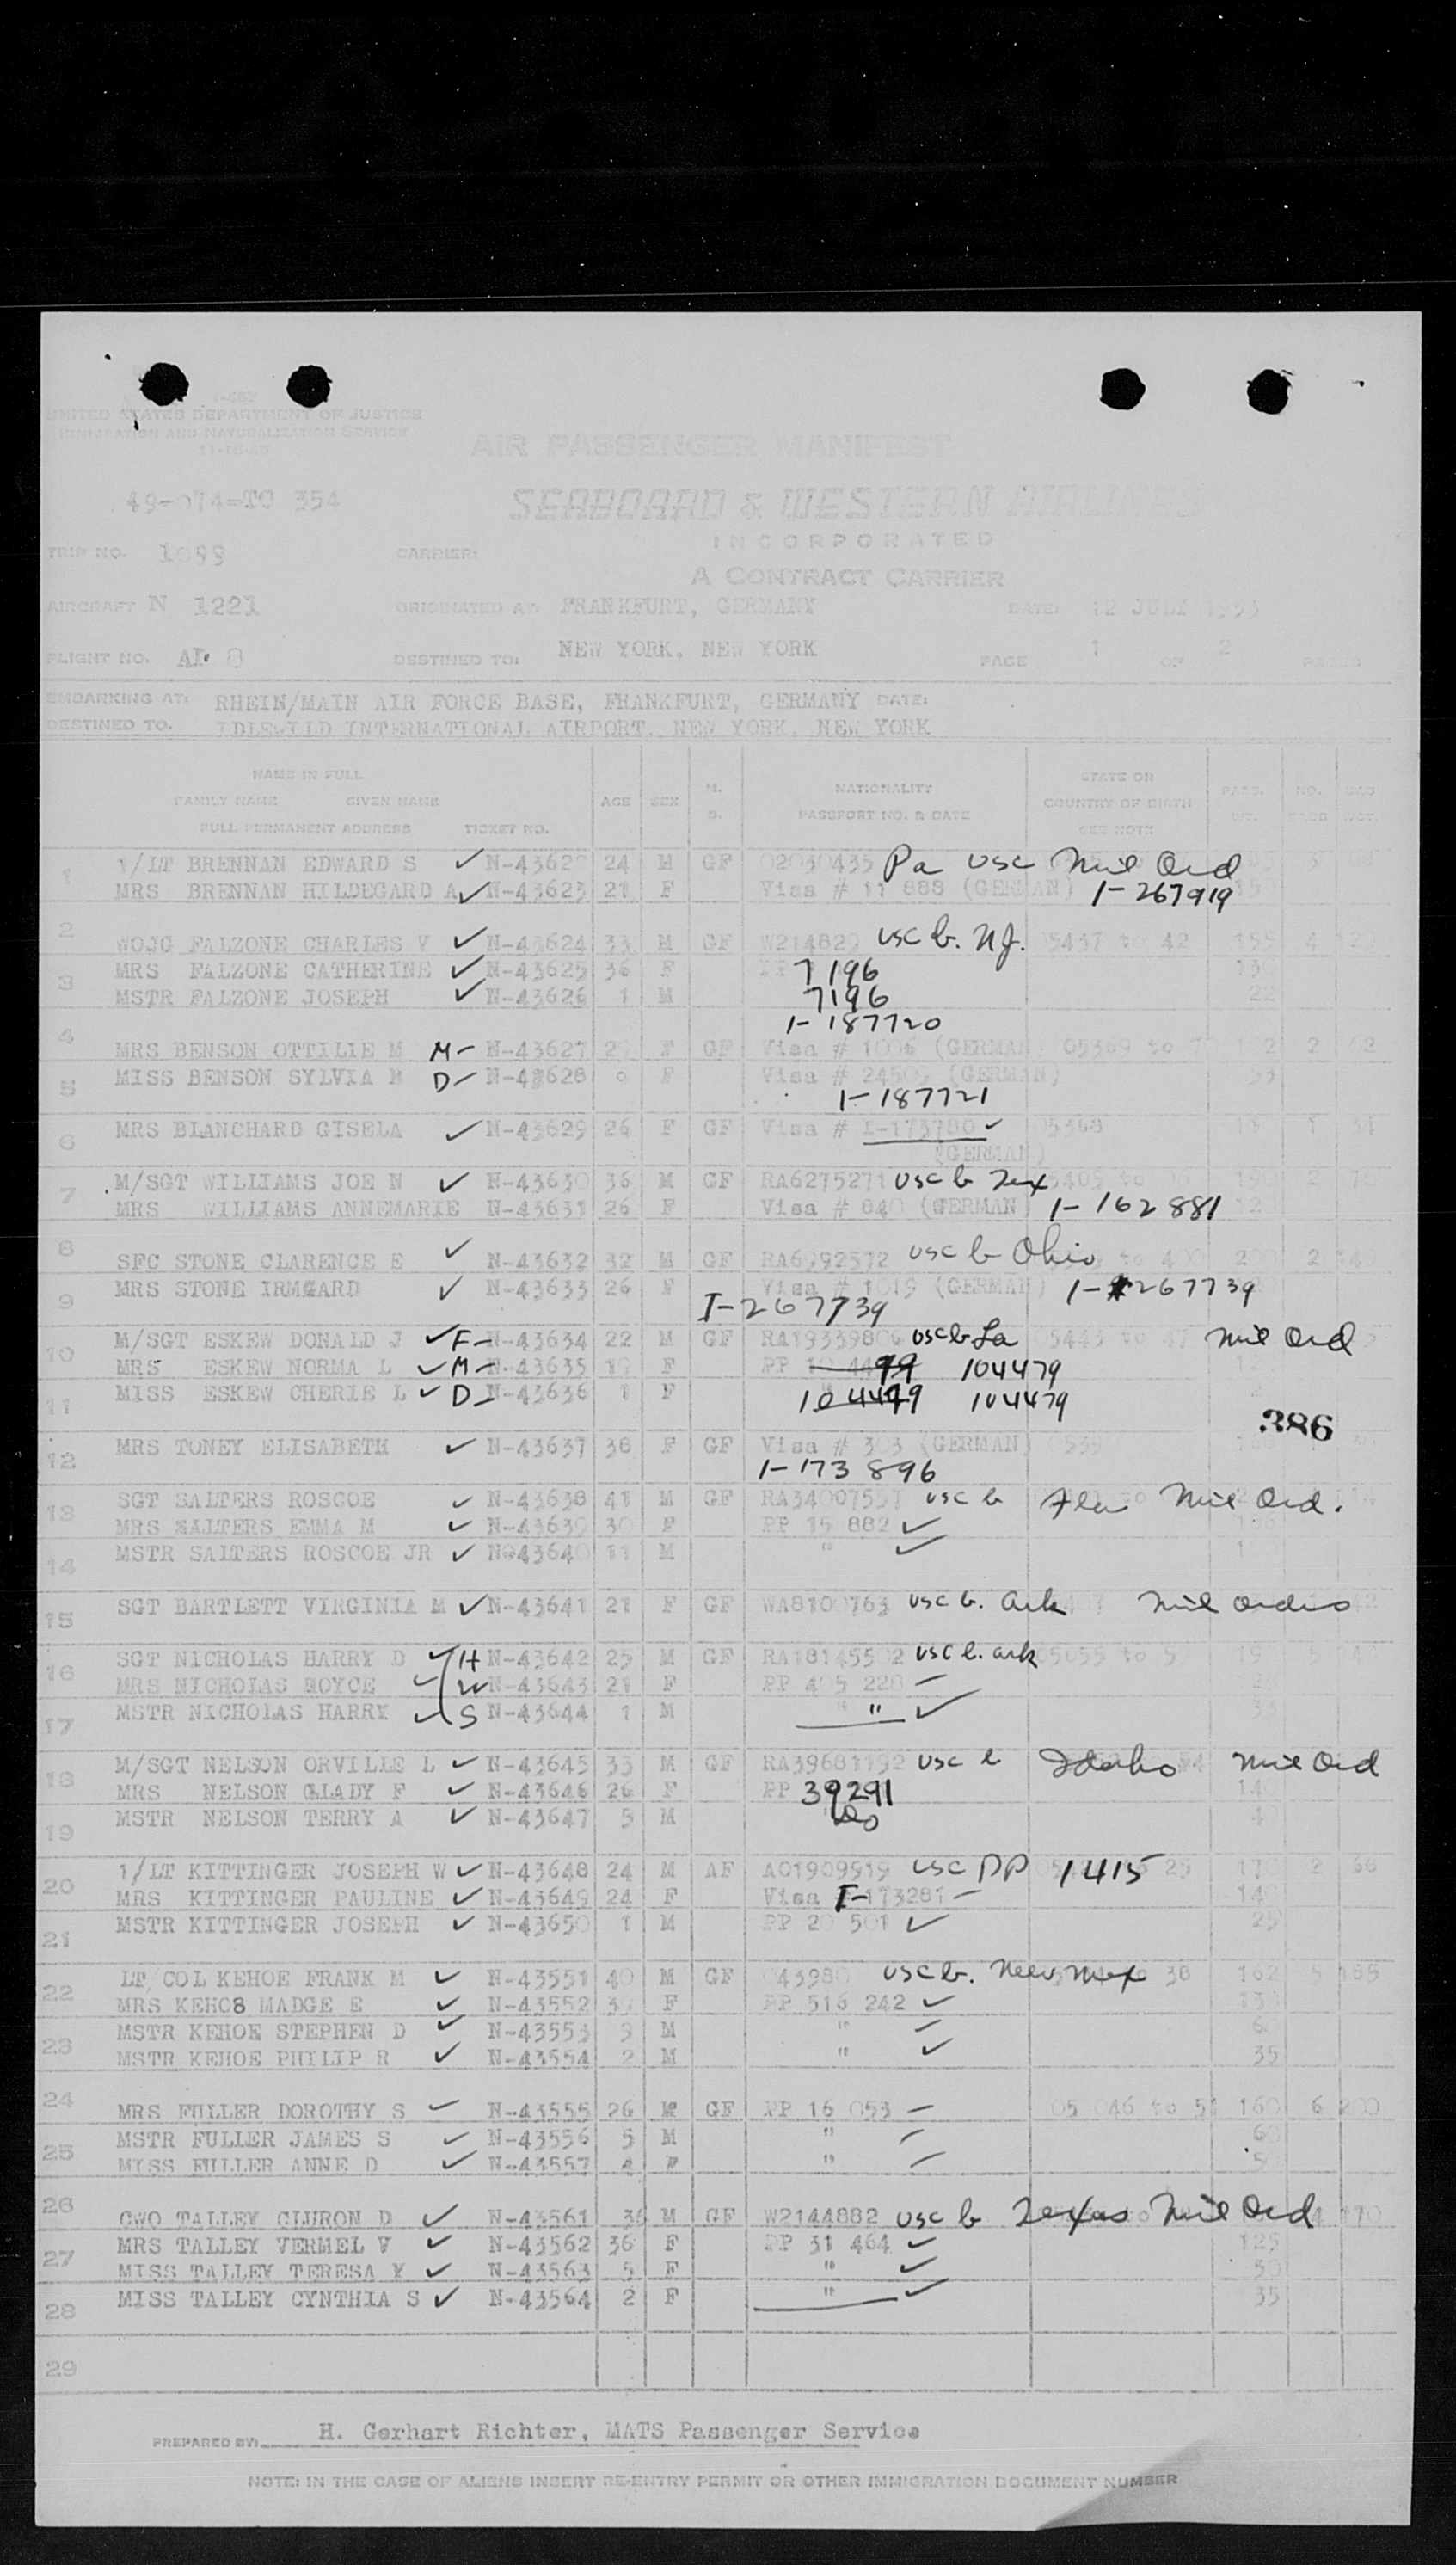 I-462
UNITED STATES DEPARTMENT OF JUSTICE
IMMIGRATION AND NATURALIZATION SERVICE
AIR PASSENGER MANIFEST
49-074-TO 354
SEABOARD & WESTERN AIRLINES
INCORPORATED
TRIP NO. 1099 CARRIER:
A CONTRACT CARRIER
AIRCRAFT N 1221 ORIGINATED AT: FRANKFURT, GERMANY DATE: 12 JULY 1953
FLIGHT NO. DESTINED TO: NEW YORK, NEW YORK PAGE 1 OF 2 PAGES
EMBARKING AT: RHEIN/MAIN AIR FORCE BASE, FRANKFURT, GERMANY DATE:
DESTINED TO. IDLEWILD INTERNATIONAL AIRPORT, NEW YORK, NEW YORK
NAME IN FULL
FAMILY NAME GIVEN NAME
FULL PERMANENT ADDRESS TICKET NO. AGE SEX M. D. NATIONALITY PASSPORT NO. & DATE STATE OR COUNTRY OF BIRTH SEE NOTE PASS. WT. NO. BAGS BAG WGT.
1 1/LT BRENNAN EDWARD S ✓ 24 M GF 02030435 Pa usc Mil Ord
MRS BRENNAN HILDEGARD A ✓ N-43623 21 F Visa # 11 888 (GERMAN) 1-267919
2 WOJG FALZONE CHARLES V ✓ N-43624 33 M GF usc b. NJ. 05437 to 42 155 4
3 MRS FALZONE CATHERINE ✓ N-43625 36 F 7196
MSTR FALZONE JOSEPH ✓ N-43626 1 M 7196 22
4 1-187720
MRS BENSON OTTILIE M M- N-43627 F GF Visa # 1006 (GERMAN) 2 62
5 MISS BENSON SYLVIA M D- N-43628 F Visa # (GERMAN)
1-187721
6 MRS BLANCHARD GISELA ✓ N-43629 26 F GF Visa # I-173780 ✓ 05368 1
(GERMAN)
7 M/SGT WILLIAMS JOE N ✓ N-43630 36 M GF RA6275271 usc b Tex 2
MRS WILLIAMS ANNEMARIE N-43631 26 F Visa # 840 (GERMAN) 1-162881
8 SFC STONE CLARENCE E ✓ N-43632 32 M GF RA6992572 usc b Ohio 200 2
9 MRS STONE IRMGARD ✓ N-43633 26 F Visa # 1019 (GERMAN) 1-267739
I-267739
10 M/SGT ESKEW DONALD J ✓ F- N-43634 22 M GF RA19339806 usc b La Mil Ord
MRS ESKEW NORMA L ✓ M- N-43635 19 F PP 104479
11 MISS ESKEW CHERIE L ✓ D- N-43636 1 F 104479 104479
386
12 MRS TONEY ELISABETH ✓ N-43637 38 F GF Visa # 303 (GERMAN)
1-173896
13 SGT SALTERS ROSCOE ✓ N-43638 41 M GF RA34007557 usc b Fla Mil Ord.
MRS SALTERS EMMA M ✓ N-43639 30 F PP 15 882 ✓
14 MSTR SALTERS ROSCOE JR ✓ N043640 11 M " ✓
15 SGT BARTLETT VIRGINIA M ✓ N-43641 21 F GF WA8100763 usc b. Ark Mil Orders
16 SGT NICHOLAS HARRY D ✓ H N-43642 25 M GF RA18145502 usc b. Ark 05055 to
MRS NICHOLAS ROYCE ✓ W N-43643 21 F PP 405 220
17 MSTR NICHOLAS HARRY ✓ S N-43644 1 M " " ✓
18 M/SGT NELSON ORVILLE L ✓ N-43645 33 M GF RA39681192 usc b Idaho Mil Ord
MRS NELSON GLADY F ✓ N-43646 26 F PP 39291
19 MSTR NELSON TERRY A ✓ N-43647 5 M Do
20 1/LT KITTINGER JOSEPH W ✓ N-43648 24 M AF AO1909919 usc PP 1415 2
MRS KITTINGER PAULINE ✓ N-43649 24 F Visa I-173281
21 MSTR KITTINGER JOSEPH ✓ N-43650 1 M PP 20 501 ✓ 25
22 LT COL KEHOE FRANK M ✓ N-43551 40 M GF 043980 usc b. New Mex 38 162 5 185
MRS KEHO8 MADGE E ✓ N-43552 F PP 516 242 ✓
23 MSTR KEHOE STEPHEN D ✓ N-43553 9 M " ✓
MSTR KEHOE PHILIP R ✓ N-43554 2 M " ✓ 35
24 MRS FULLER DOROTHY S ✓ N-43555 26 GF PP 16 053 05 046 to 51 160 6 200
25 MSTR FULLER JAMES S ✓ N-43556 5 M " 60
MISS FULLER ANNE D ✓ N-43557 4 F " 50
26 CWO TALLEY CIJIRON D ✓ N-43561 36 M GF W2144882 usc b Texas Mil Ord 170
27 MRS TALLEY VERMEL V ✓ N-43562 36 F PP 31 464 ✓ 125
MISS TALLEY TERESA Y ✓ N-43563 5 F " ✓ 50
28 MISS TALLEY CYNTHIA S ✓ N-43564 2 F " ✓ 35
29
PREPARED BY: H. Gerhart Richter, MATS Passenger Service
NOTE: IN THE CASE OF ALIENS INSERT RE-ENTRY PERMIT OR OTHER IMMIGRATION DOCUMENT NUMBER